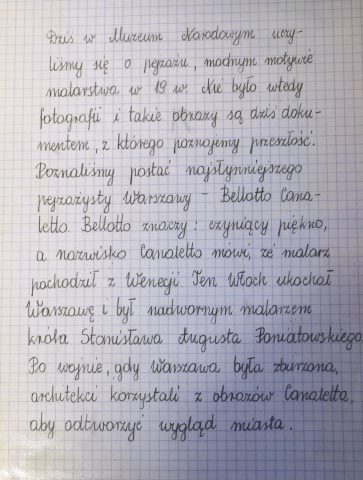 Dziś w Muzeum Narodowym uczy-
liśmy się o pejzażu, modnym motywie
malarstwa w 19 w. Nie było wtedy
fotografii i takie obrazy są dziś doku-
mentem, z którego poznajemy przeszłość.
Poznaliśmy postać najsłynniejszego
pejzażysty Warszawy - Bellotto Cana-
letto. Bellotto znaczy: czyniący piękno,
a nazwisko Canaletto mówi, że malarz
pochodził z Wenecji. Ten Włoch ukochał
Warszawę i był nadwornym malarzem
króla Stanisława Augusta Poniatowskiego.
Po wojnie, gdy Warszawa była zburzona,
architekci korzystali z obrazów Canaletta,
aby odtworzyć wygląd miasta.